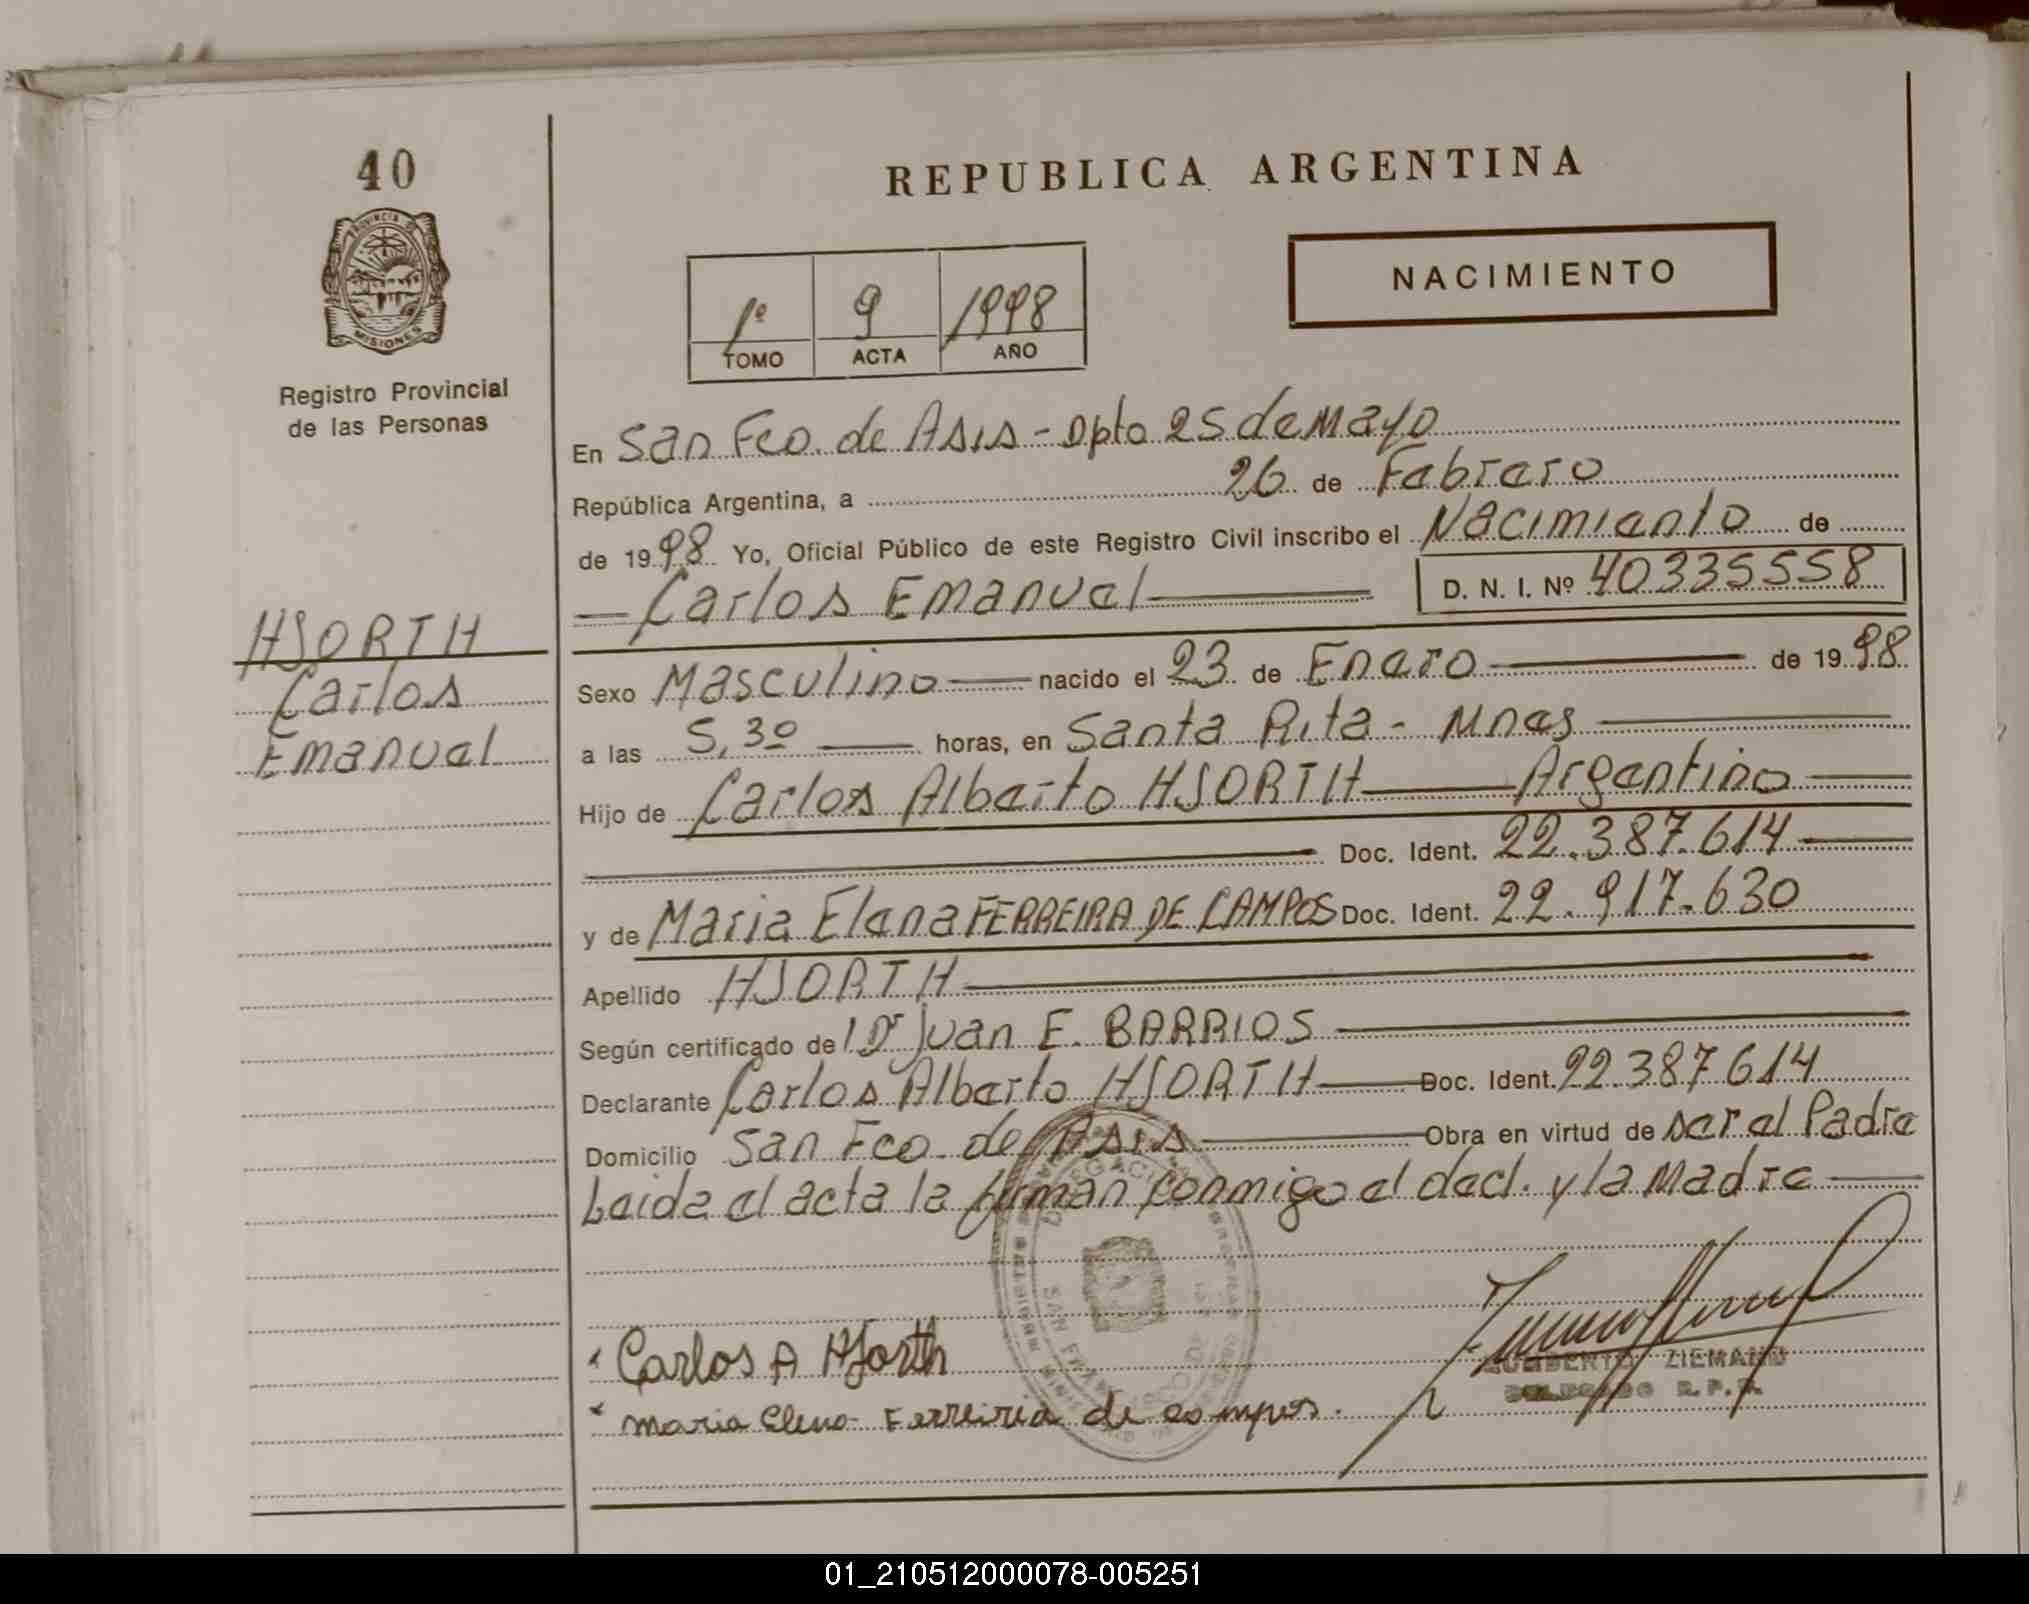 40
PROVINCIA DE
MISIONES
Registro Provincial
de las Personas
HJORTH
Carlos
Emanuel
REPUBLICA ARGENTINA
NACIMIENTO
1º 9 1998
TOMO ACTA AÑO
En San Fco. de Asis - Dpto 25 de Mayo
República Argentina, a 26 de Febrero
de 1998 Yo, Oficial Público de este Registro Civil inscribo el Nacimiento de
Carlos Emanuel D. N. I. Nº 40335558
Sexo Masculino nacido el 23 de Enero de 1998
a las 5,30 horas, en Santa Rita - Mnes
Hijo de Carlos Alberto HJORTH Argentino
Doc. Ident. 22.387.614
y de Maria Elena FERREIRA DE CAMPOS Doc. Ident. 22.917.630
Apellido HJORTH
Según certificado del Dr Juan E. BARRIOS
Declarante Carlos Alberto HJORTH Doc. Ident. 22387614
Domicilio San Fco. de Asis Obra en virtud de ser el Padre
Leida el acta la firman conmigo el decl. y la Madre
Carlos A Hjorth
Maria Elena Ferreira de campos.
HUMBERTO ZIEMANN
DELEGADO R.P.P.
01_210512000078-005251